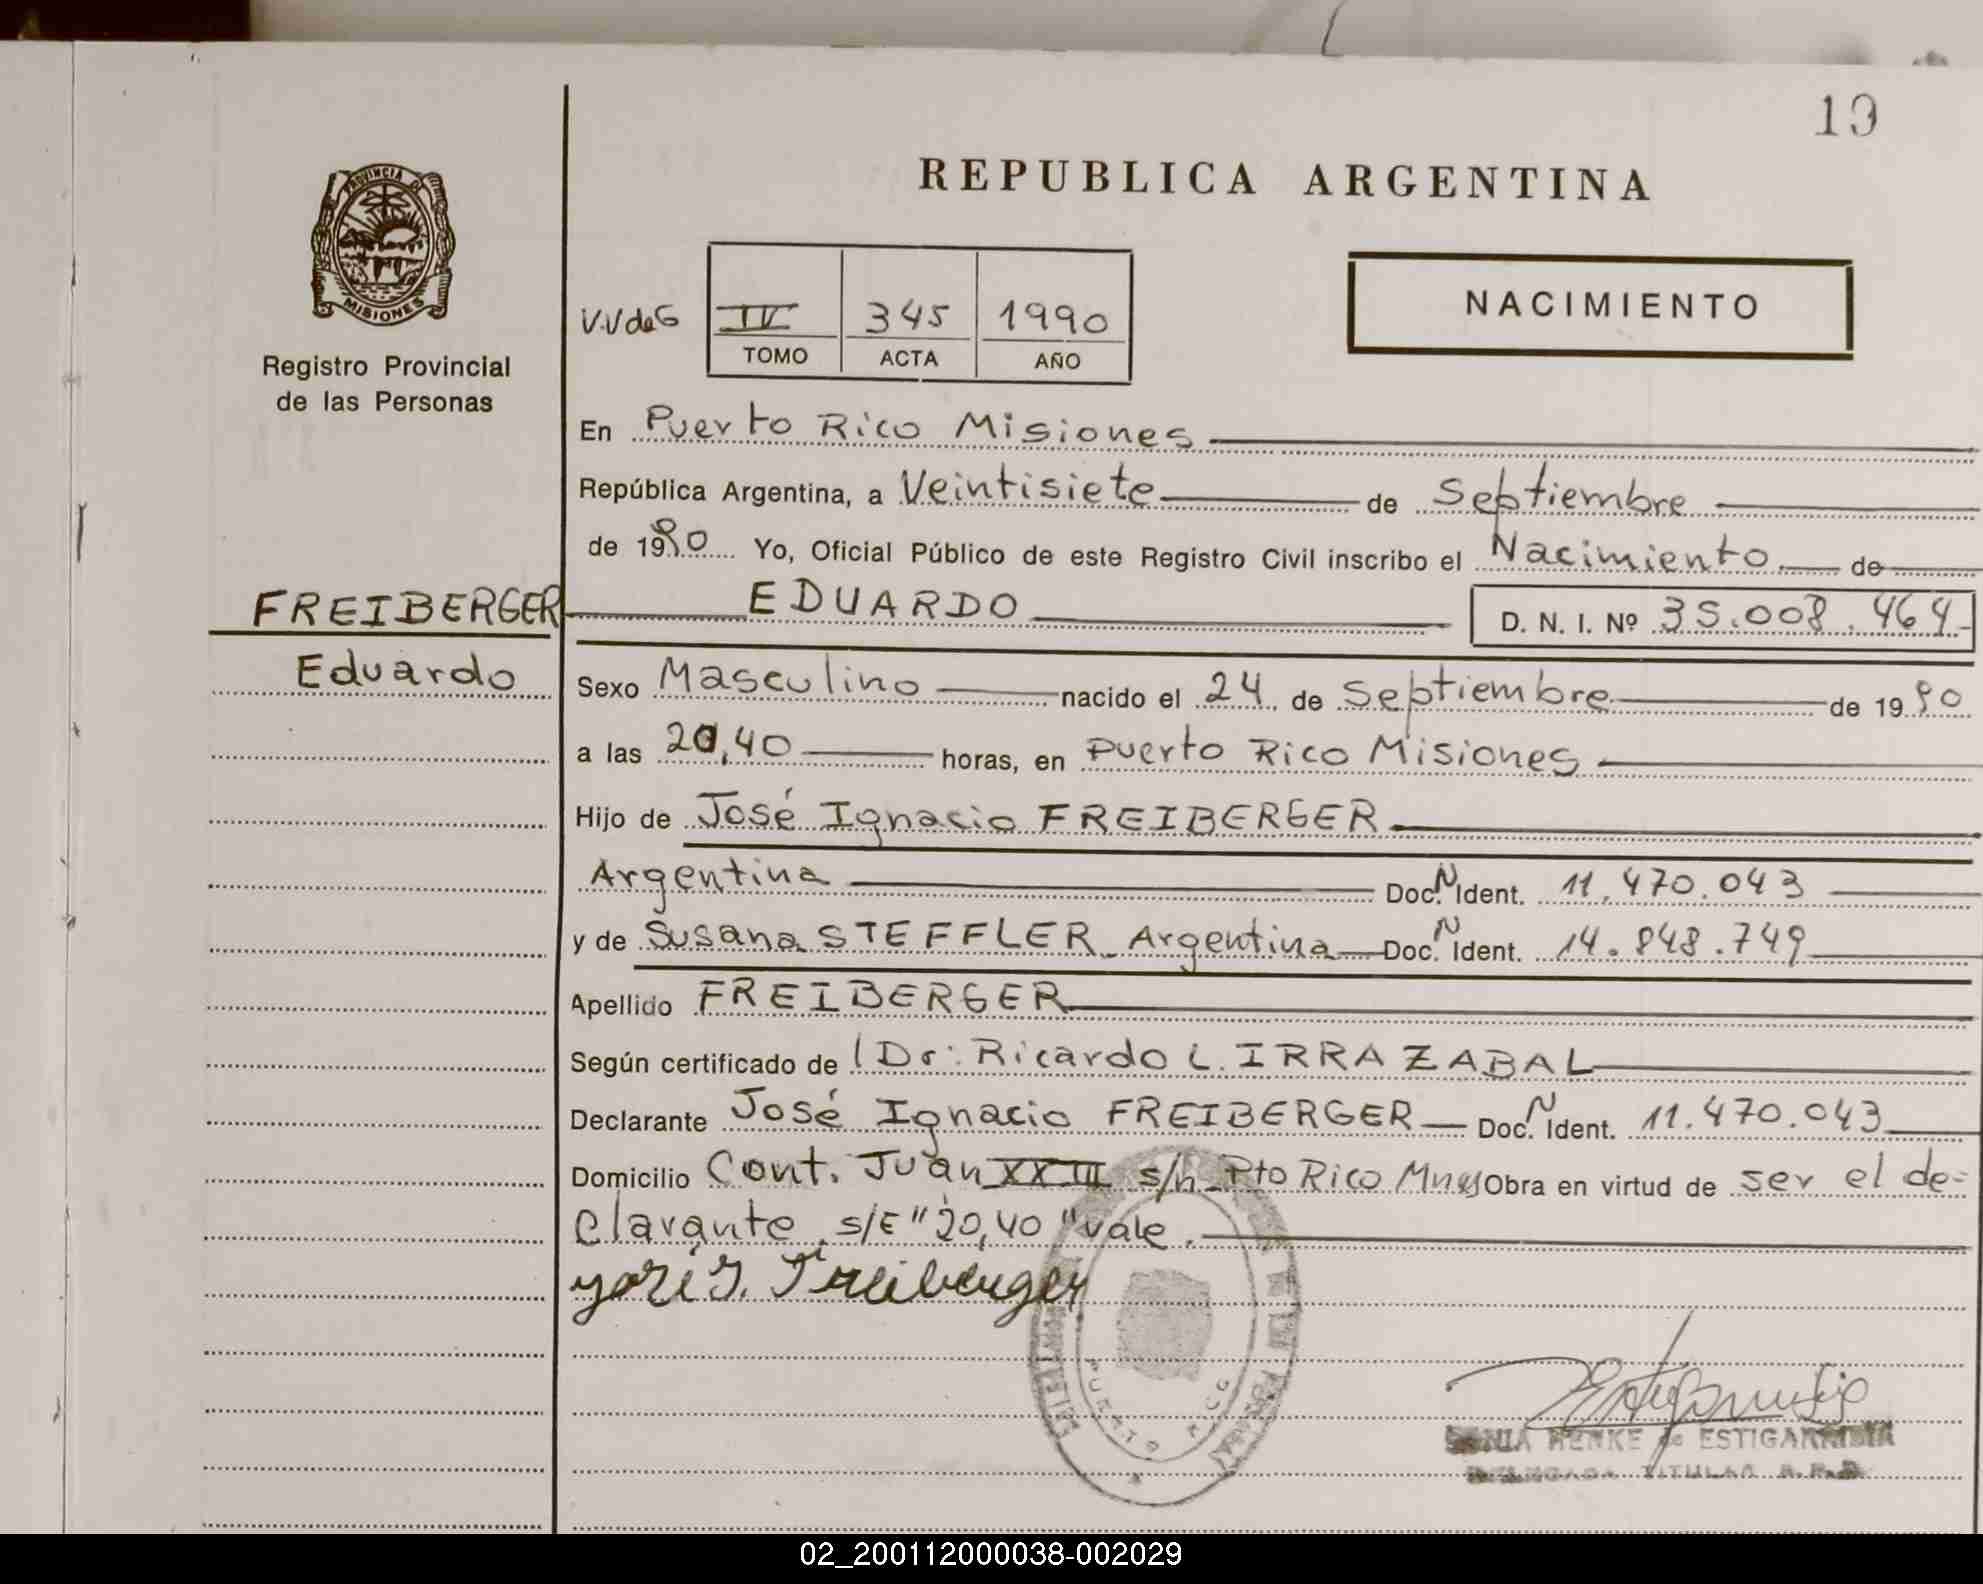 19
REPUBLICA ARGENTINA
PROVINCIA DE
MISIONES
Registro Provincial
de las Personas
V.V de G
IV 345 1990
TOMO ACTA AÑO
NACIMIENTO
En Puerto Rico Misiones
República Argentina, a Veintisiete de Septiembre
de 1990 Yo, Oficial Público de este Registro Civil inscribo el Nacimiento de
FREIBERGER EDUARDO D. N. I. Nº 35.008.464
Eduardo
Sexo Masculino nacido el 24 de Septiembre de 1990
a las 20,40 horas, en Puerto Rico Misiones
Hijo de José Ignacio FREIBERGER
Argentina Doc. N Ident. 11.470.043
y de Susana STEFFLER Argentina Doc. N Ident. 14.848.749
Apellido FREIBERGER
Según certificado de Dr: Ricardo L. IRRAZABAL
Declarante José Ignacio FREIBERGER Doc. N Ident. 11.470.043
Domicilio Cont. Juan XXIII s/n Pto Rico Mnes Obra en virtud de ser el de-
clarante. s/E "20,40" vale.
José I. Freiberger
PUERTO RICO
SONIA HENKE de ESTIGARRIBIA
DELEGADA TITULAR R.P.P.
02_200112000038-002029